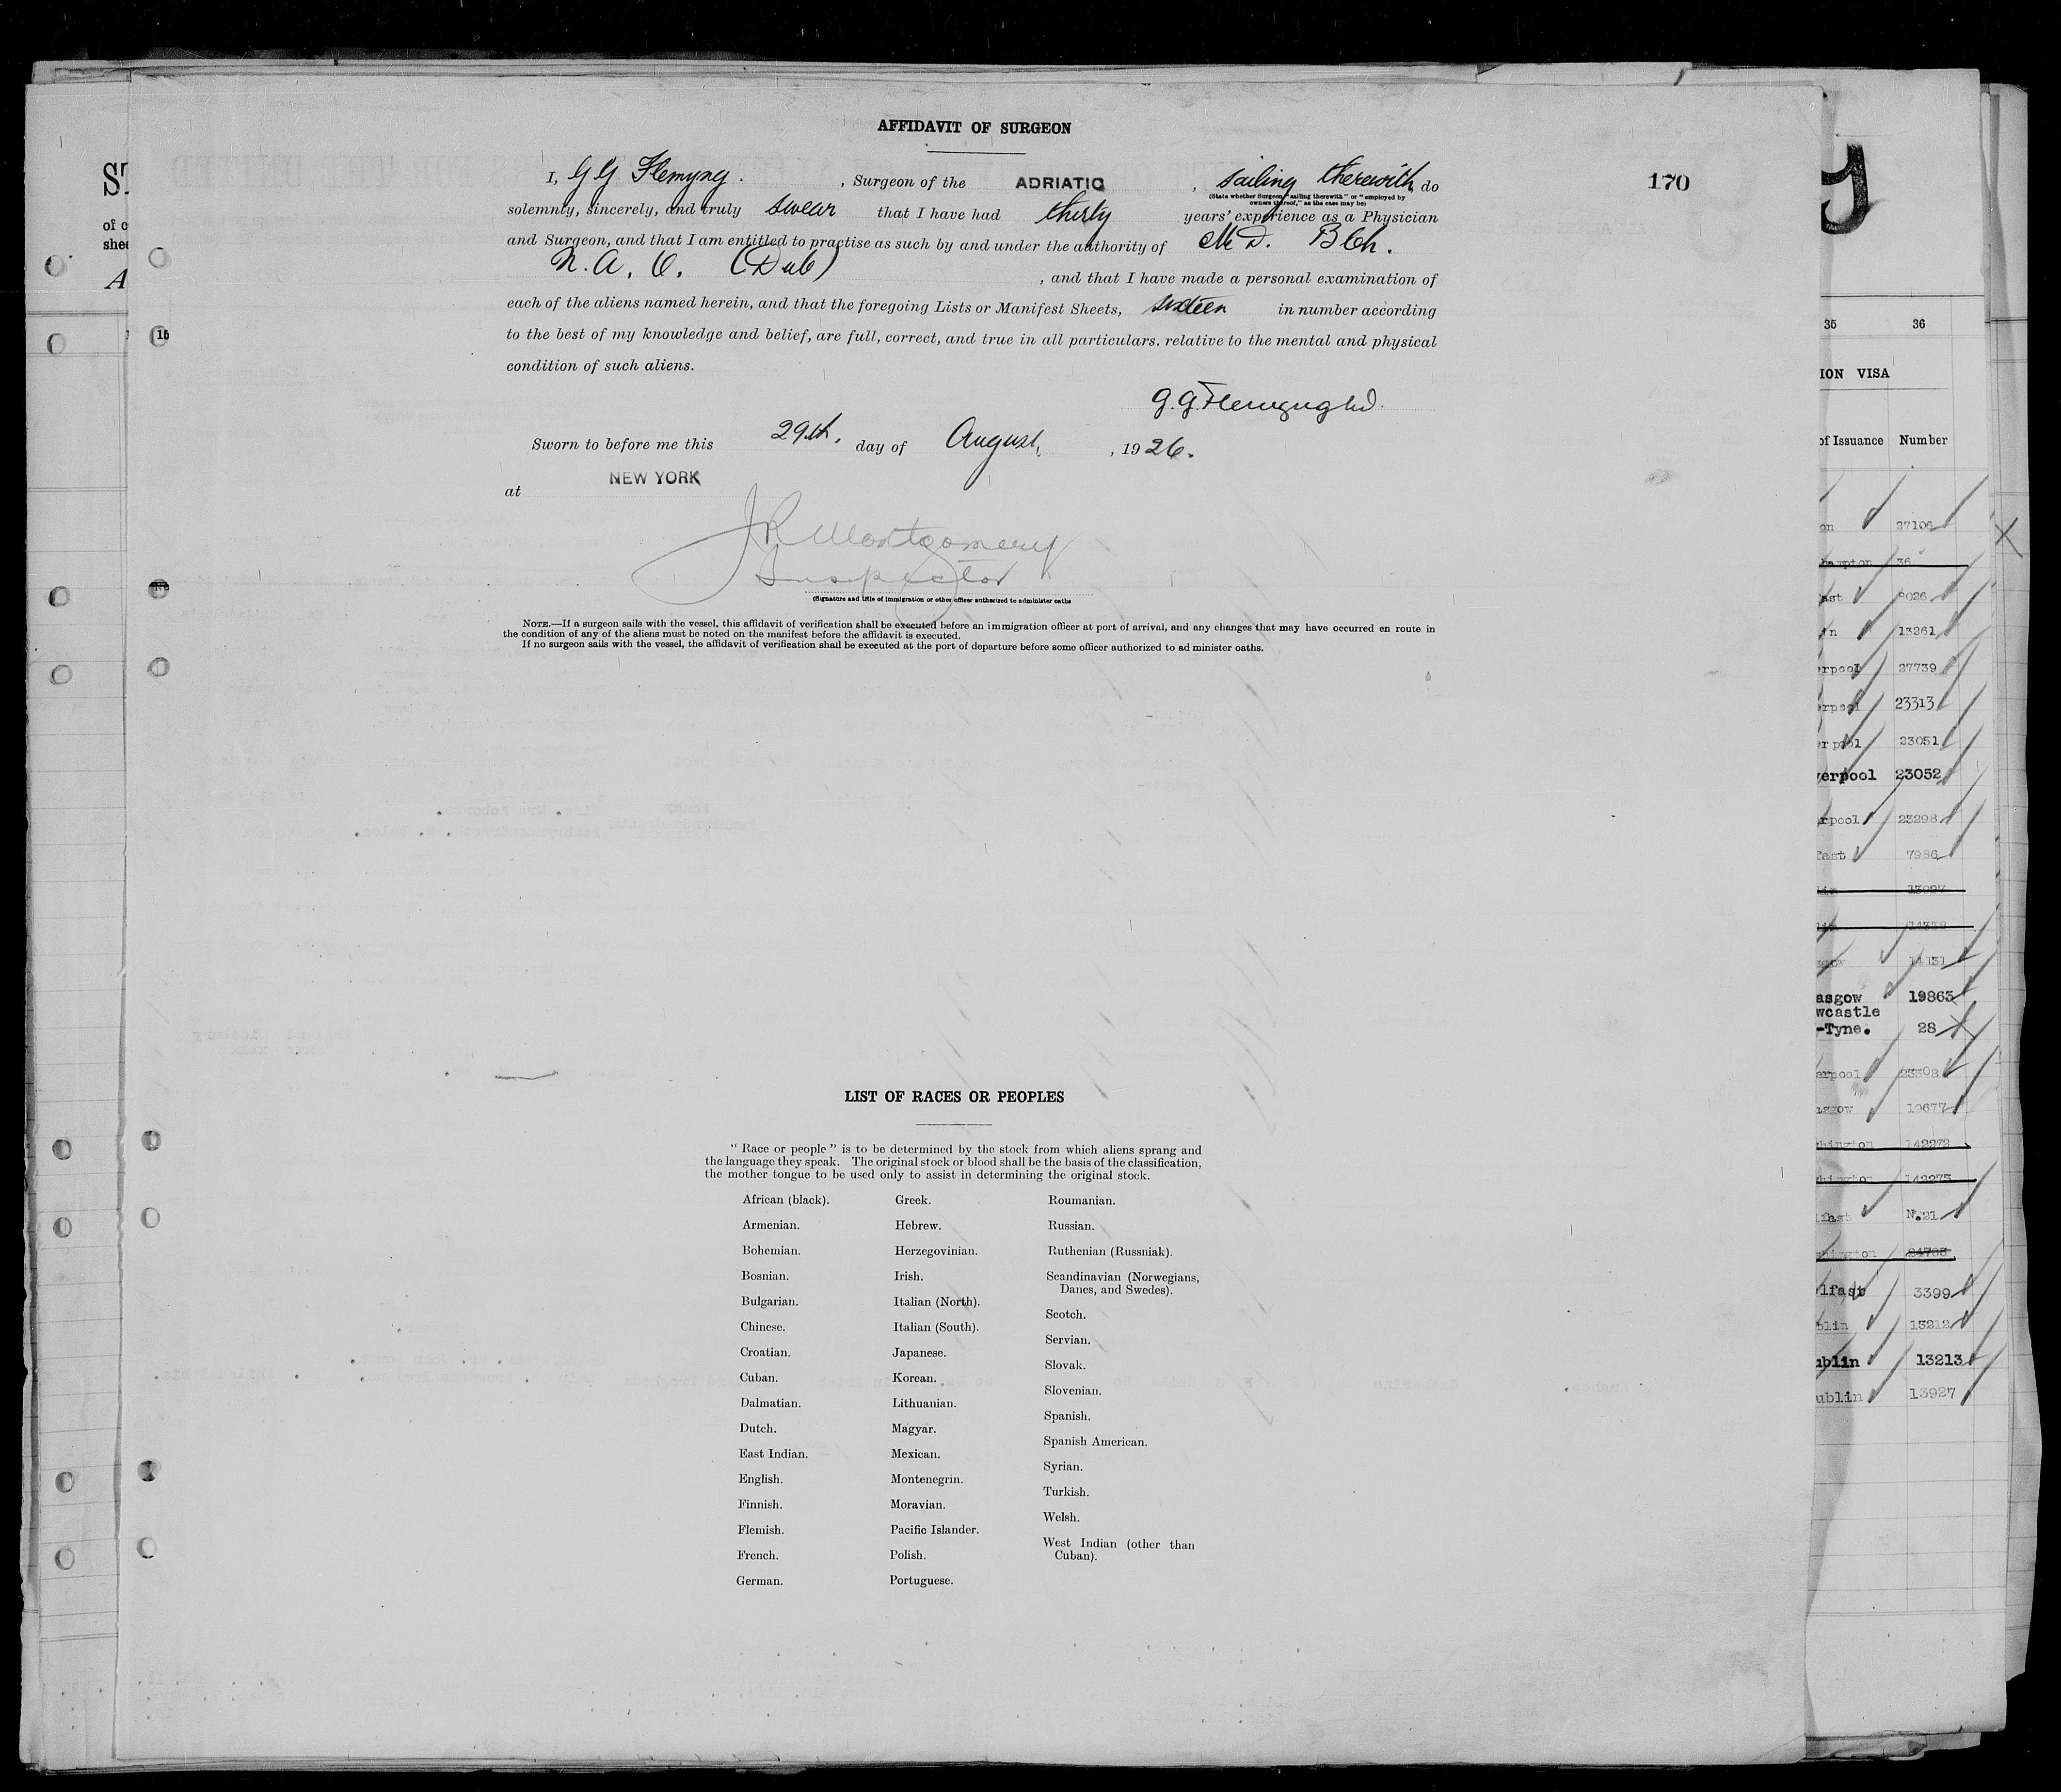 AFFIDAVIT OF SURGEON
I, G G Flemyng. , Surgeon of the ADRIATIC , sailing therewith do
(State whether Surgeon "sailing therewith" or "employed by
owners thereof," as the case may be)
170
solemnly, sincerely, and truly swear that I have had thirty years' experience as a Physician
and Surgeon, and that I am entitled to practise as such by and under the authority of M D. B Ch.
(Dub) , and that I have made a personal examination of
each of the aliens named herein, and that the foregoing Lists or Manifest Sheets, sixteen in number according
to the best of my knowledge and belief, are full, correct, and true in all particulars. relative to the mental and physical
condition of such aliens.
G. G. Flemyng
Sworn to before me this 29th. day of August, , 1926.
at NEW YORK
J R Montgomery
Inspector
(Signature and title of immigration or other officer authorized to administer oaths
NOTE.—If a surgeon sails with the vessel, this affidavit of verification shall be executed before an immigration officer at port of arrival, and any changes that may have occurred en route in
the condition of any of the aliens must be noted on the manifest before the affidavit is executed.
If no surgeon sails with the vessel, the affidavit of verification shall be executed at the port of departure before some officer authorized to ad minister oaths.
LIST OF RACES OR PEOPLES
" Race or people " is to be determined by the stock from which aliens sprang and
the language they speak. The original stock or blood shall be the basis of the classification,
the mother tongue to be used only to assist in determining the original stock.
African (black).
Armenian.
Bohemian.
Bosnian.
Bulgarian.
Chinese.
Croatian.
Cuban.
Dalmatian.
Dutch.
East Indian.
English.
Finnish.
Flemish.
French.
German.
Greek.
Hebrew.
Herzegovinian.
Irish.
Italian (North).
Italian (South).
Japanese.
Korean.
Lithuanian.
Magyar.
Mexican.
Montenegrin.
Moravian.
Pacific Islander.
Polish.
Portuguese.
Roumanian.
Russian.
Ruthenian (Russniak).
Scandinavian (Norwegians,
Danes, and Swedes).
Scotch.
Servian.
Slovak.
Slovenian.
Spanish.
Spanish American.
Syrian.
Turkish.
Welsh.
West Indian (other than
Cuban).
35 36
ION VISA
of Issuance Number
on 27106
hampton 36
ast 8026
in 13261
erpool 27739
erpool 23313
erpool 23051
verpool 23052
rpool 23298
fast 7986
asgow 19863
wcastle
-Tyne. 28
erpool
asgow 19677
hington 142272
hington 142273
lfast N.21
lfast 3399
blin 13212
ublin 13213
ublin 13927